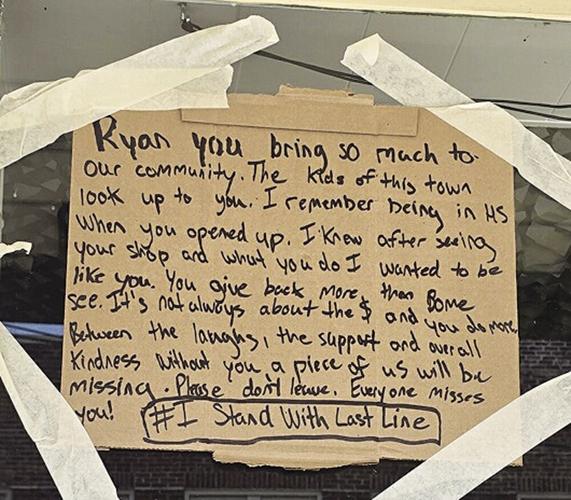 Ryan you bring so much to
our community. The kids of this town
look up to you. I remember being in HS
when you opened up. I knew after seeing
your shop and what you do I wanted to be
like you. You give back more than some
see. It's not always about the $ and you do more
Between the laughs, the support and overall
kindness without you a piece of us will be
missing. Please don't leave. Everyone misses
you!
#I Stand With Last Line